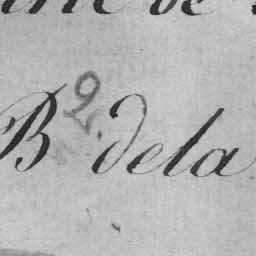 de
B 2. dela